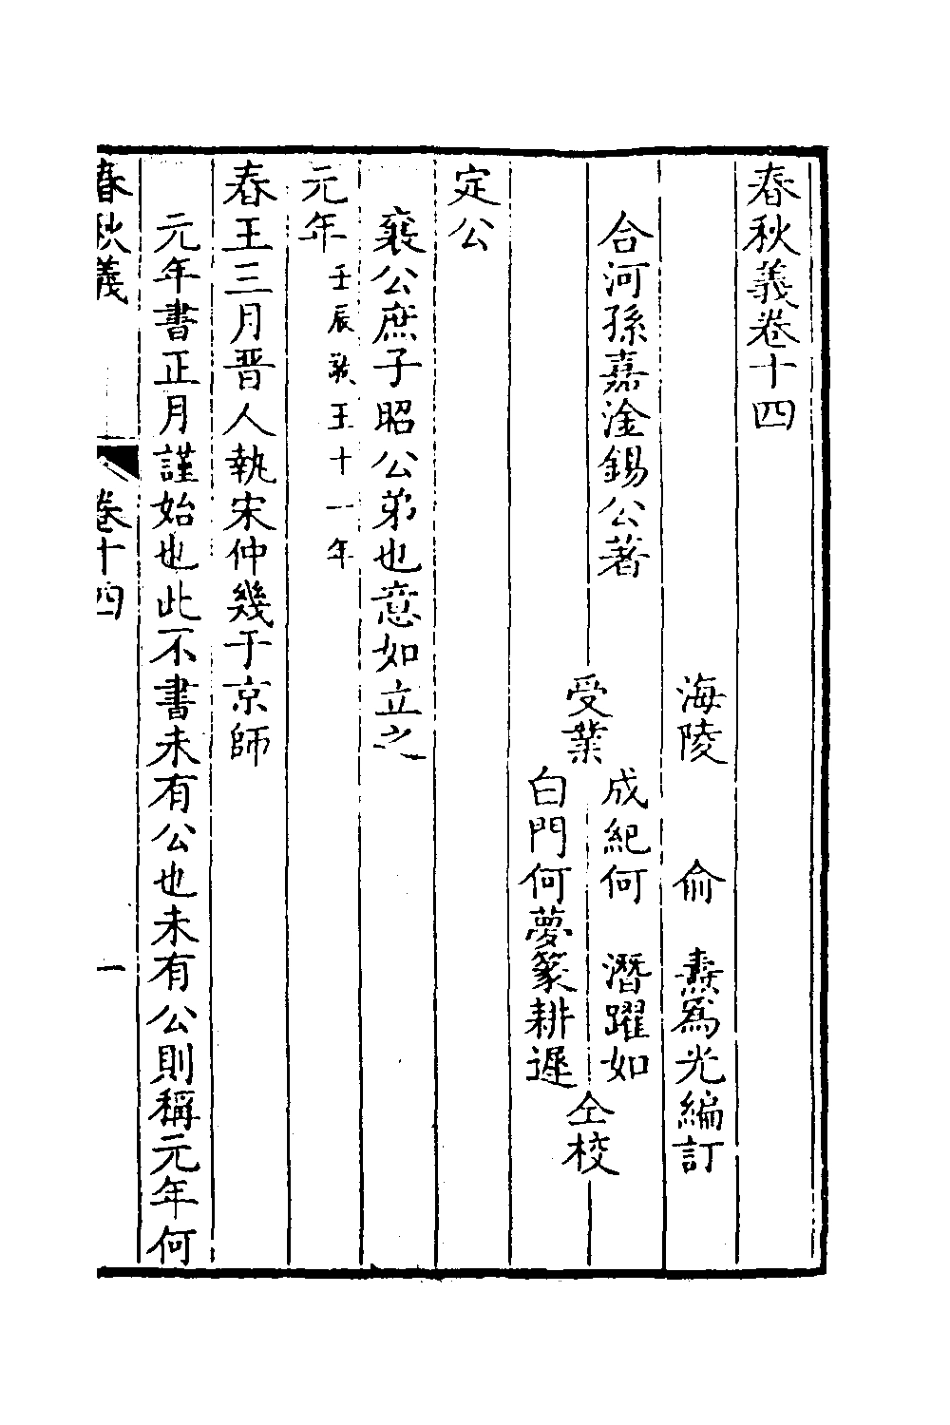 春秋義卷十四
海陵 俞 燾爲光編訂
合河孫嘉淦錫公著
受業
成紀何 潛躍如
白門何夢篆耕遲
仝校
定公
襄公庶子昭公弟也意如立之
元年壬辰敬王十一年
春王三月晉人執宋仲幾于京師
元年書正月謹始也此不書未有公也未有公則稱元年何
春秋義
卷十四
一